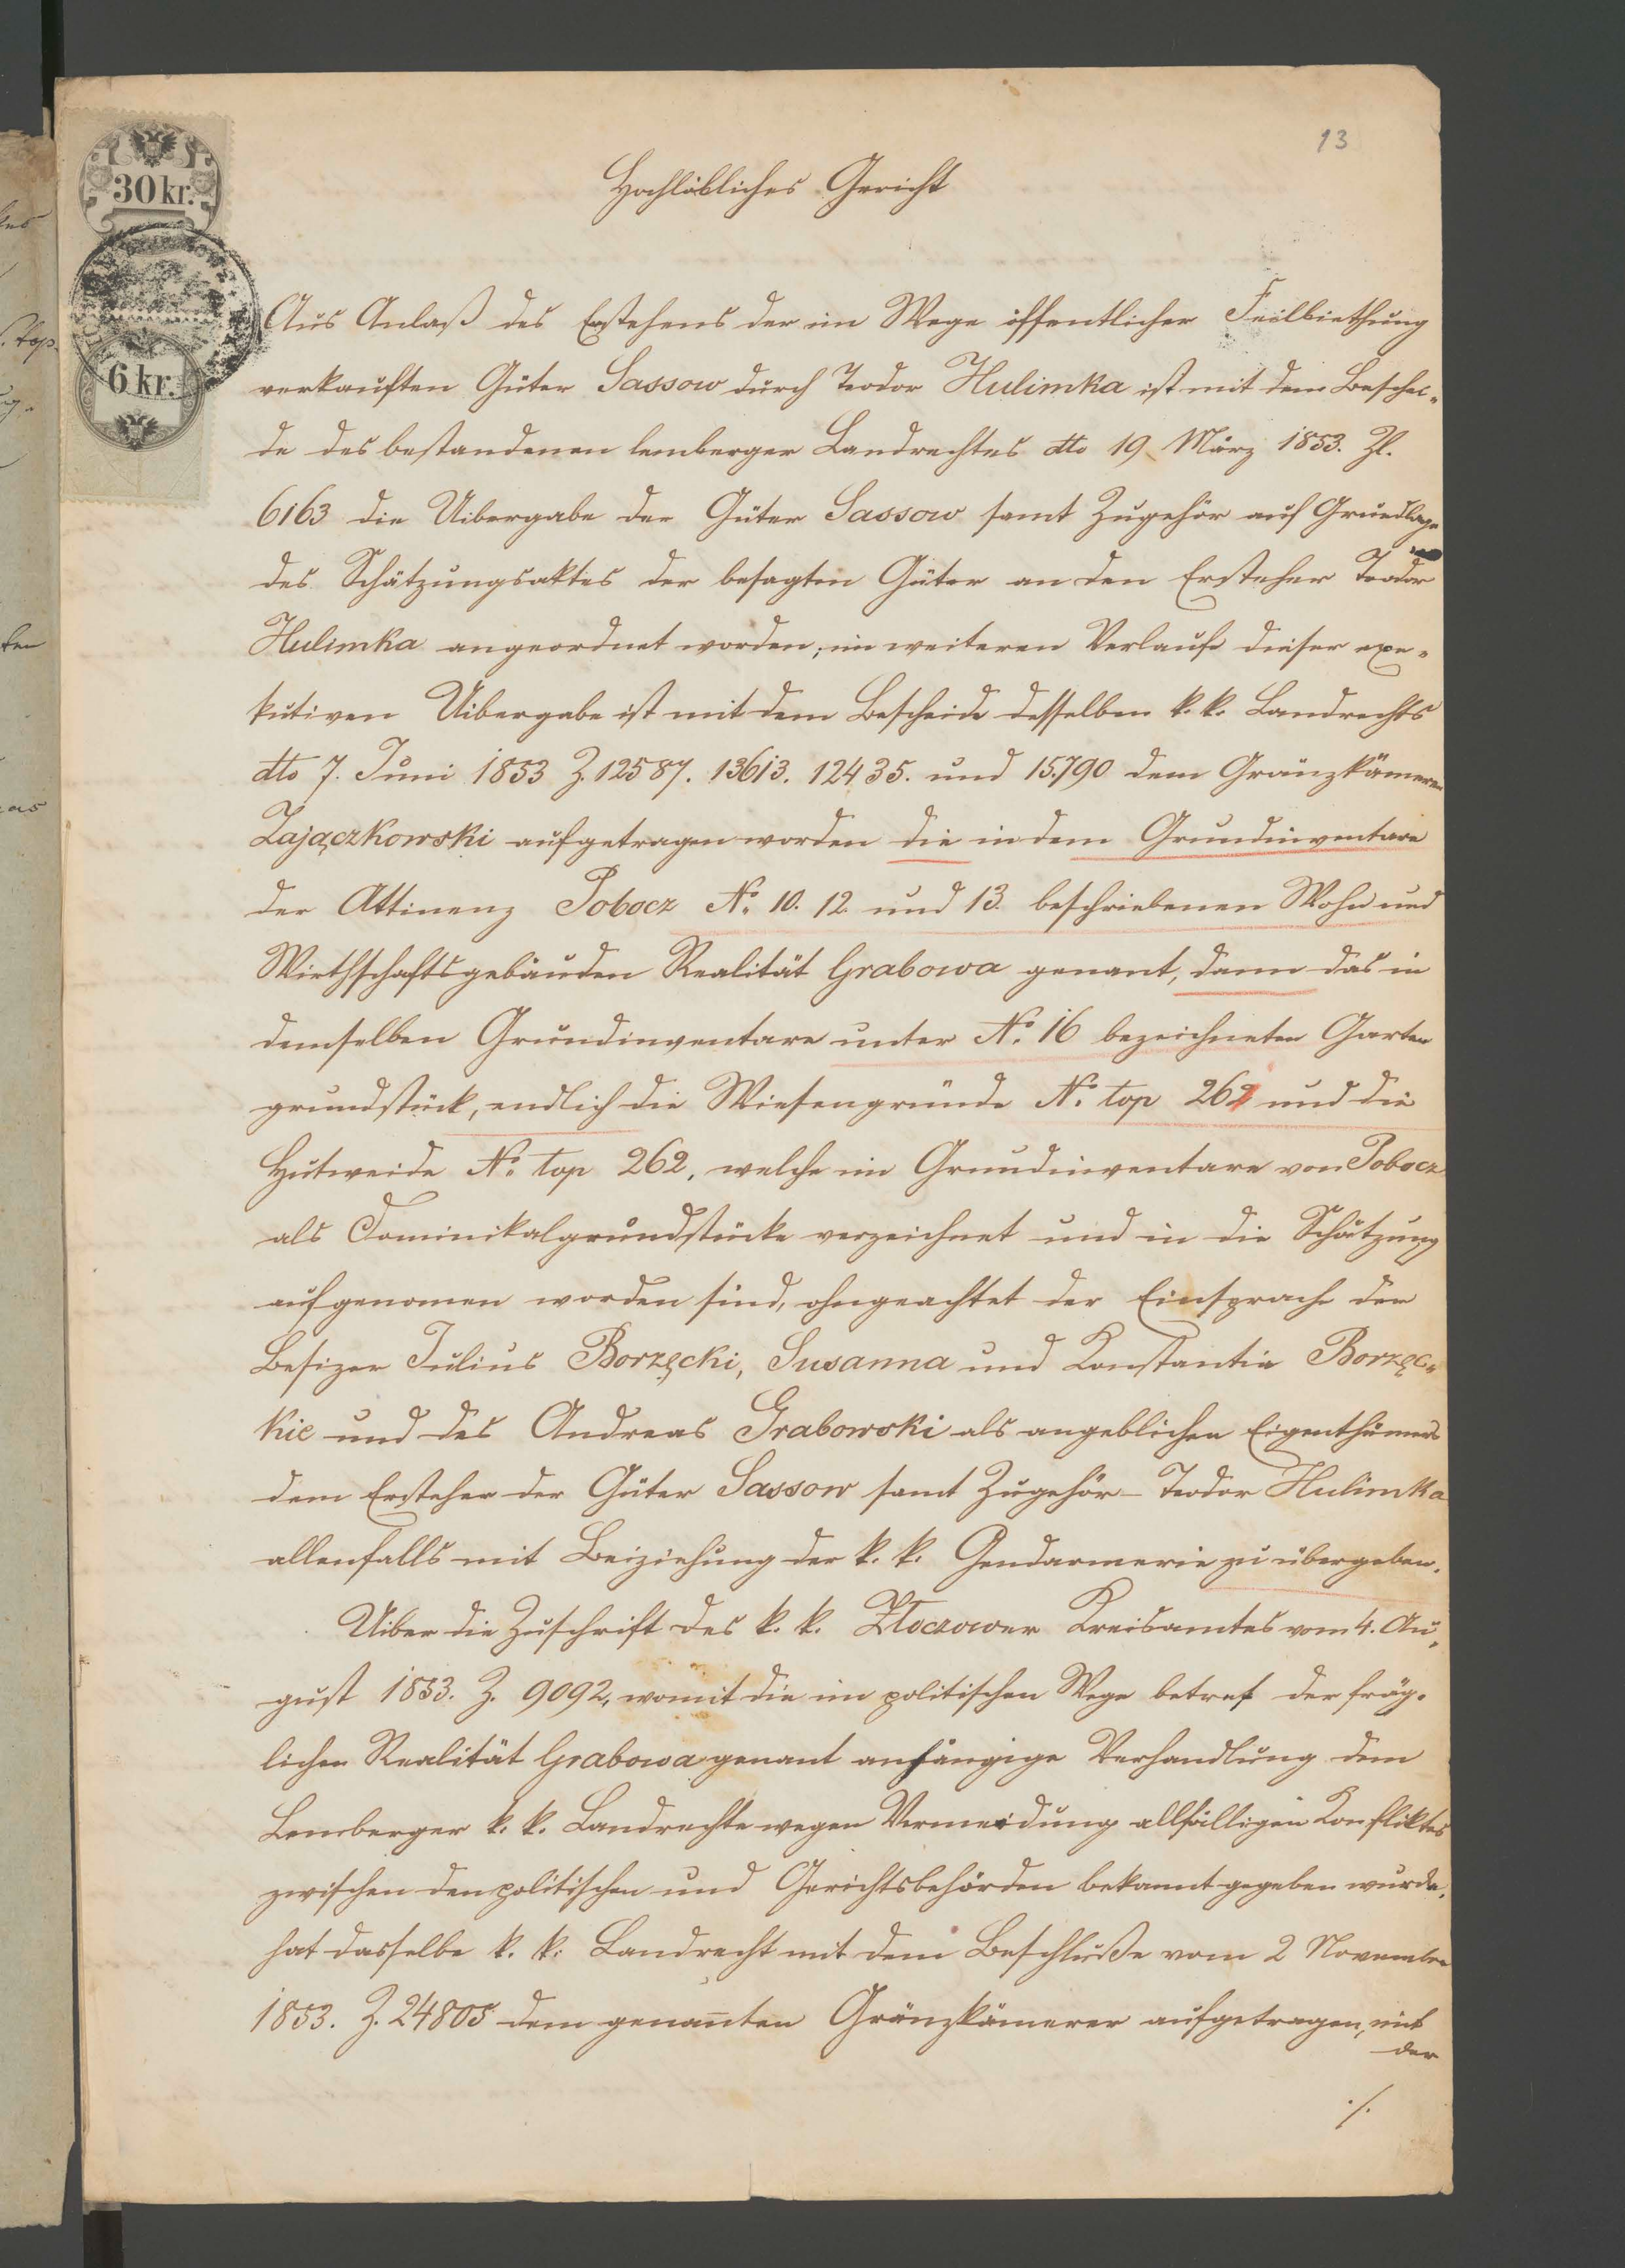 13
30 kr.
6 kr.
Hochlöbliches Gericht
Aus Anlaß des Erstehens der im Wege öffentlicher Feilbiethung
verkauften Güter Sassow durch Teodor Hulimka ist mit dem Beschei„
de des bestandenen lemberger Landrechtes dto 19 März 1853. Zl.
6163 die Uibergabe der Güter Sassow samt Zugehör auf Grundlage
des Schätzungsaktes der besagten Güter an den Ersteher Teodor
Hulimka angeordnet worden; im weiteren Verlaufe dieser exe„
kutiven Uibergabe ist mit dem Bescheide desselben k. k. Landrechts
dto 7. Juni 1853 Z. 12587. 13613. 12435. und 15.790 dem Gränzkämerer
Zajączkowski aufgetragen worden die in dem Grundinventare
der Attinenz Pobocz No. 10. 12. und 13. beschriebenen Wohn und
Wirthschaftsgebäuden Realität Grabowa genant, dann das in
demselben Grundinventare unter No. 16 bezeichneten Garten
grundstück, endlich die Wiesengründe No. top 261 und die
Hutweide No. top 262, welche im Grundinventare von Pobocz
als Dominikalgrundstücke verzeichnet und in die Schätzung
aufgenomen worden sind, ohngeachtet der Einsprache der
Besizer Julius Borzęcki, Susanna und Konstantia Borzęc„
kie und des Andreas Grabowski als angeblichen Eigenthümers
dem Ersteher der Güter Sassow samt Zugehör – Teodor Hulimka
allenfalls mit Beiziehung der k. k. Gendarmerie zu übergeben.
Uiber die Zuschrift des k. k. Złoczower Kreisamtes vom 4. Au„
gust 1853. Z. 9092, womit die im politischen Wege betref der fräg„
lichen Realität Grabowa genant anhängige Verhandlung dem
Lemberger k. k. Landrechte wegen Vermeidung allfälligen Konfliktes
zwischen den politischen und Gerichtsbehörden bekannt gegeben wurde,
hat dasselbe k. k. Landrecht mit dem Beschluße vom 2 November
1853. Z. 24805 dem genannten Gränzkämerer aufgetragen, mit
der
./.